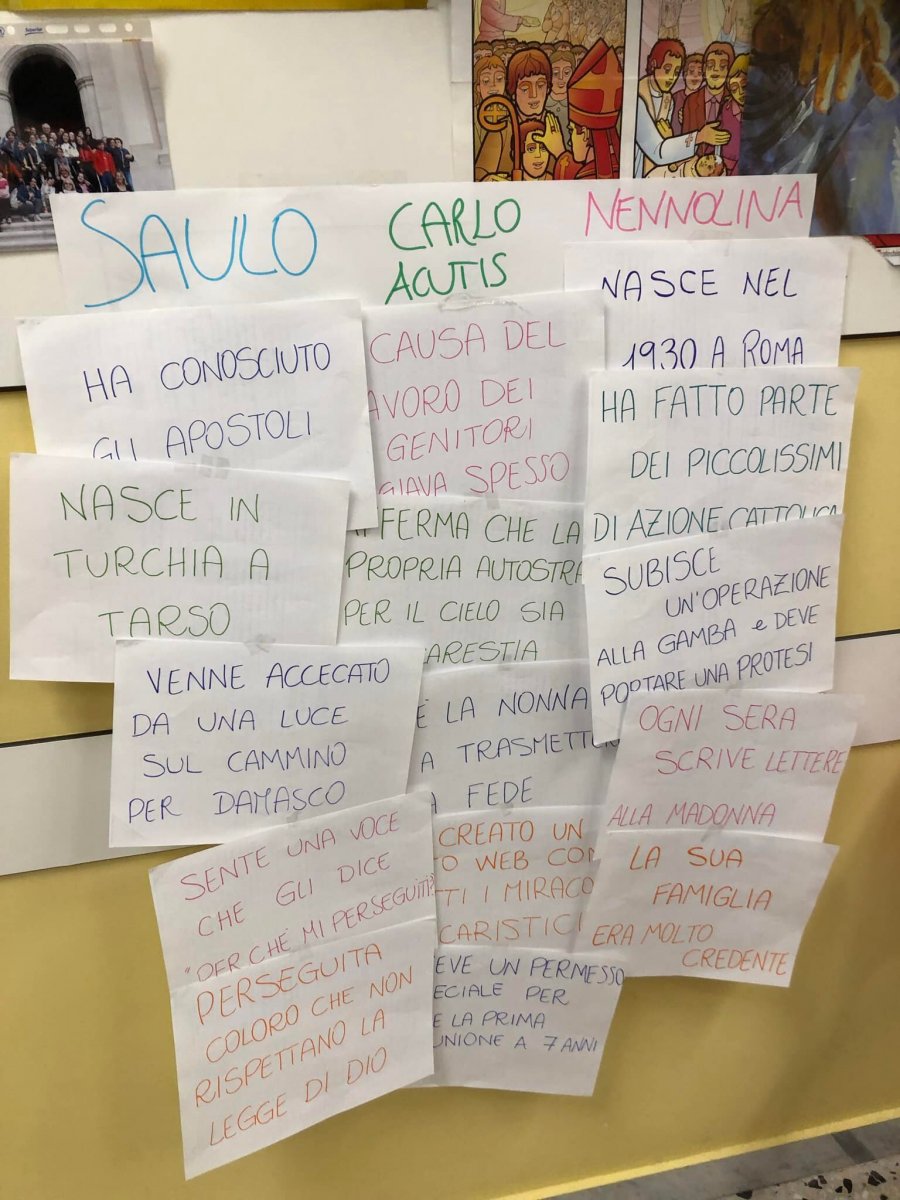 SAULO
CARLO
ACUTIS
NENNOLINA
HA CONOSCIUTO
GLI APOSTOLI
NASCE IN
TURCHIA A
TARSO
VENNE ACCECATO
DA UNA LUCE
SUL CAMMINO
PER DAMASCO
SENTE UNA VOCE
CHE GLI DICE
"PERCHÉ MI PERSEGUITI?
PERSEGUITA
COLORO CHE NON
RISPETTANO LA
LEGGE DI DIO
CAUSA DEL
AVORO DEI
GENITORI
GIAVA SPESSO
FERMA CHE LA
PROPRIA AUTOSTRA
PER IL CIELO SIA
CARESTIA
È LA NONNA
A TRASMETTE
A FEDE
CREATO UN
O WEB CON
TTI I MIRACO
CARISTICI
EVE UN PERMESSO
ECIALE PER
E LA PRIMA
UNIONE A 7 ANNI
NASCE NEL
1930 A ROMA
HA FATTO PARTE
DEI PICCOLISSIMI
DI AZIONE CATTOLICA
SUBISCE
UN'OPERAZIONE
ALLA GAMBA e DEVE
PORTARE UNA PROTESI
OGNI SERA
SCRIVE LETTERE
ALLA MADONNA
LA SUA
FAMIGLIA
ERA MOLTO
CREDENTE